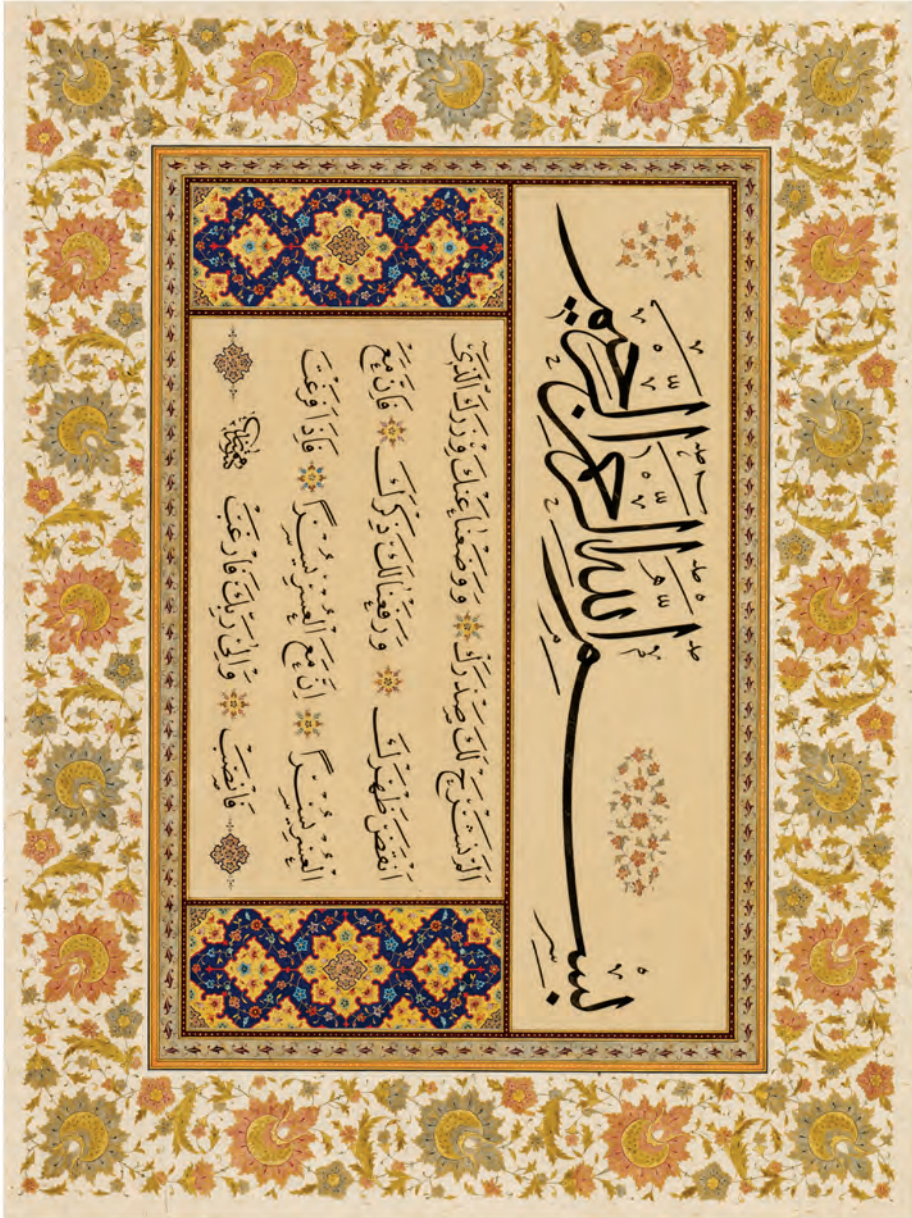 بِسْمِ اللّٰهِ الرَّحْمٰنِ الرَّحِيمِ
اَلَمْ نَشْرَحْ لَكَ صَدْرَكَ وَوَضَعْنَا عَنْكَ وِزْرَكَ الَّذِى
اَنْقَضَ ظَهْرَكَ وَرَفَعْنَا لَكَ ذِكْرَكَ فَاِنَّ مَعَ
الْعُسْرِ يُسْرًا اِنَّ مَعَ الْعُسْرِ يُسْرًا فَاِذَا فَرَغْتَ
فَانْصَبْ وَاِلٰى رَبِّكَ فَارْغَبْ